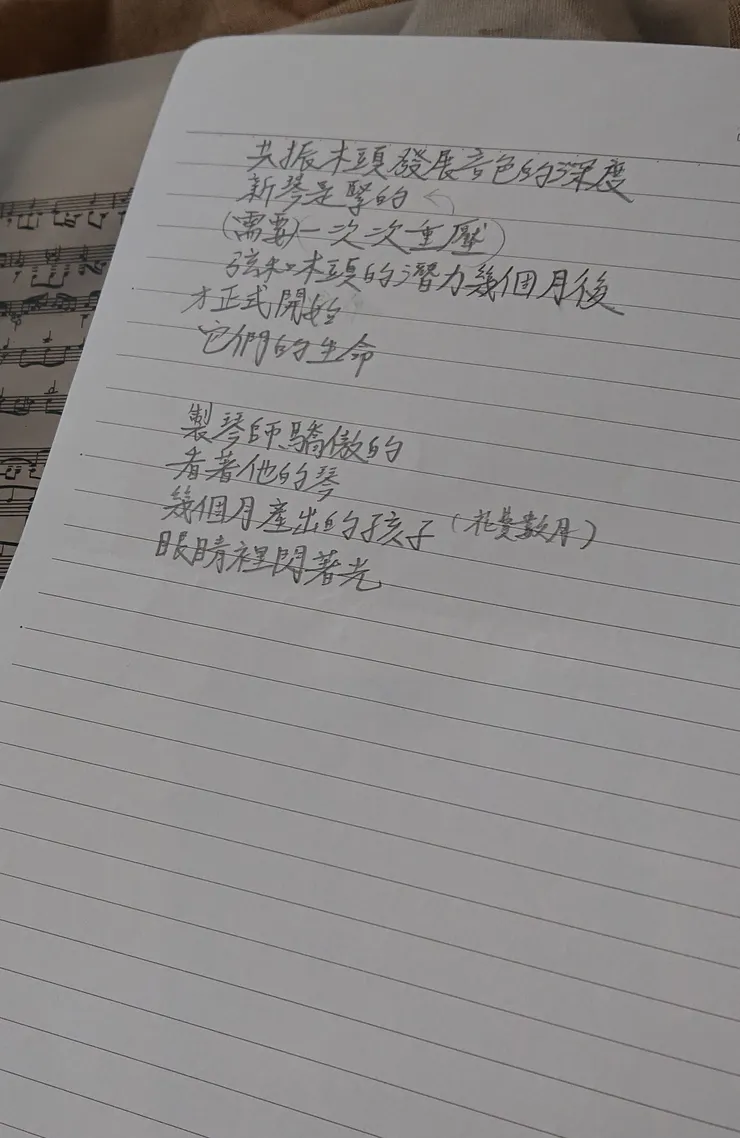 共振木頭發展音色的深度
新琴是緊的
(需要)一次次重壓)
弦和木頭的潛力幾個月後
才正式開始
它們的生命
製琴師驕傲的
看著他的琴
幾個月產出的孩子(花費數月)
眼睛裡閃著光